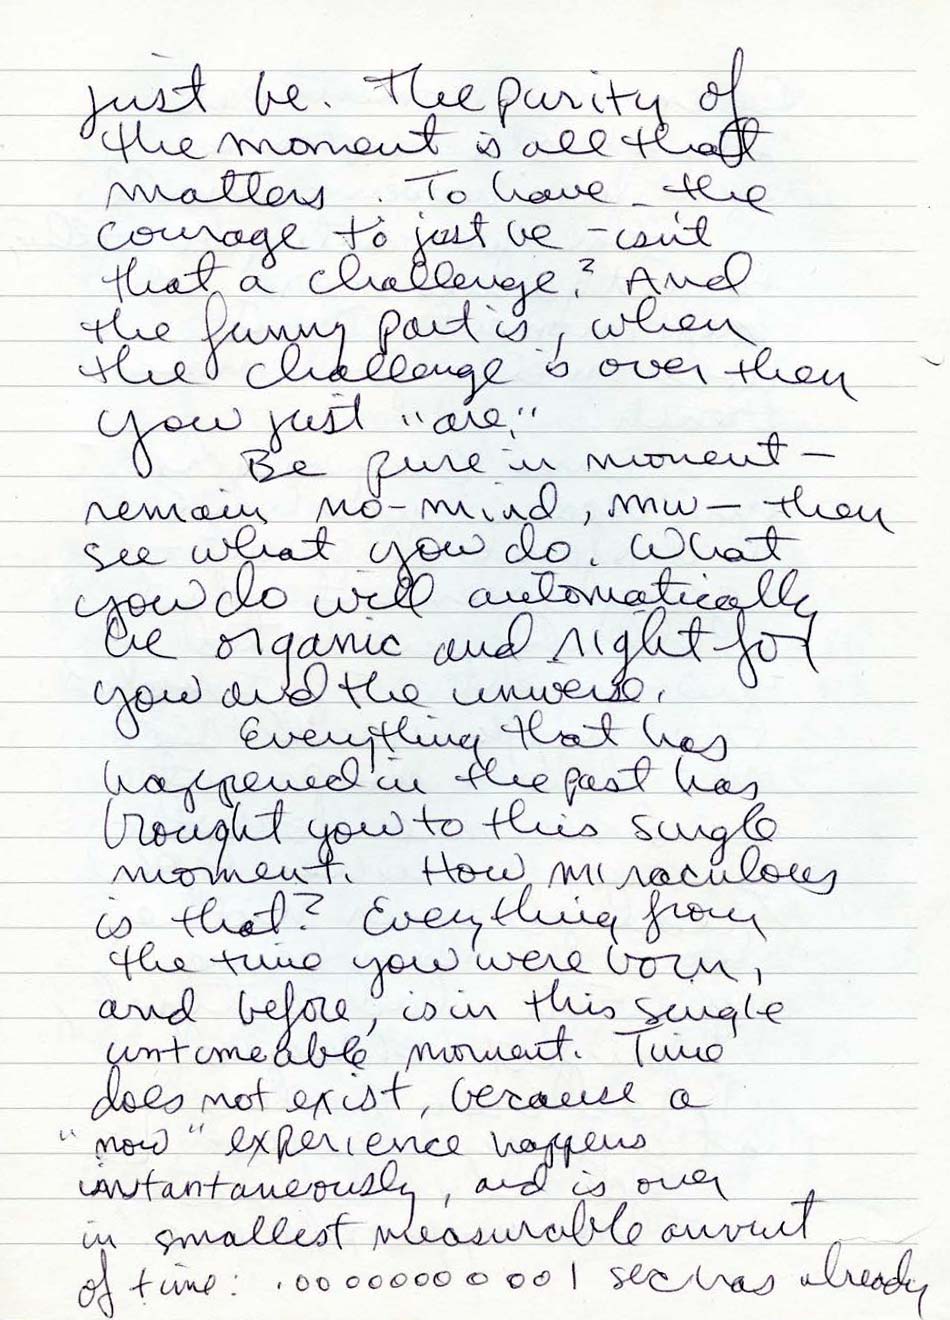 just be. The purity of
the moment is all that
matters. To have the
courage to just be – isn't
that a challenge? And
the funny part is, when
the challenge is over then
you just "are."
Be pure in moment –
remain no-mind, mw – then
see what you do. What
you do will automatically
be organic and right for
you and the universe.
Everything that has
happened in the past has
brought you to this single
moment. How miraculous
is that? Everything from
the time you were born,
and before, is in this single
untimeable moment. Time
does not exist, because a
"now" experience happens
instantaneously, and is over
in smallest measurable amount
of time: .00000000001 sec has already